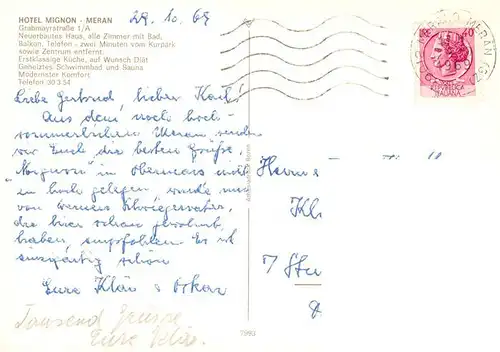 HOTEL MIGNON - MERAN
Grabmayrstraße 1/A
Neuerbautes Haus, alle Zimmer mit Bad,
Balkon, Telefon - zwei Minuten vom Kurpark
sowie Zentrum entfernt.
Erstklassige Küche, auf Wunsch Diät
Geheiztes Schwimmbad und Sauna
Modernster Komfort
Telefon 30 3 54
29. 10. 69
Liebe Gertrud, lieber Karl!
Aus dem noch hoch-
sommerlichen Meran senden
wir Euch die besten Grüße.
"Mignon" in Obermais
in hoch gelegen, wurde uns
von Schwiegervater,
die hier schon gewohnt
haben, empfohlen. Es ist
einzigartig schön
Eure Klär & Oskar
Tausend Grüsse
Eure
Herrn
Kl
7 Stu
7993
LIRE 40
MERANO MERAN (BZ)